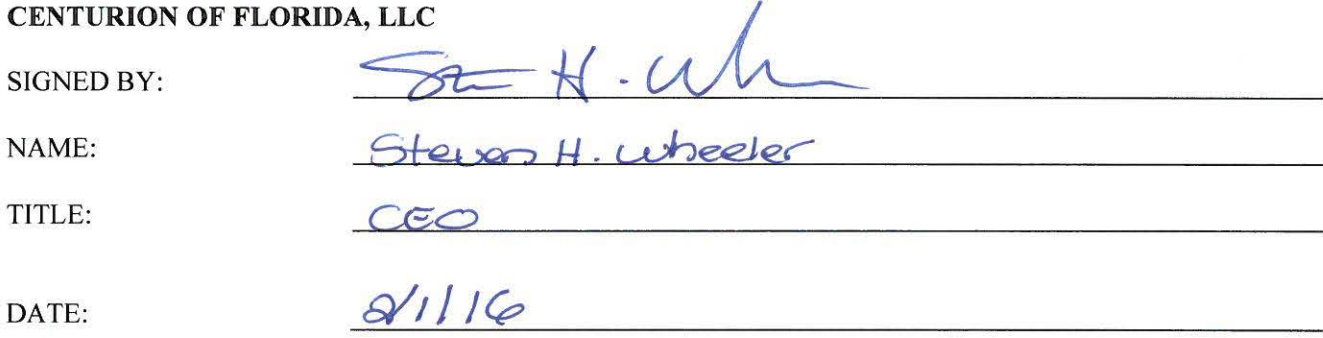 CENTURION OF FLORIDA, LLC
SIGNED BY: St H. Wh
NAME: Steven H. Wheeler
TITLE: CEO
DATE: 2/1/16